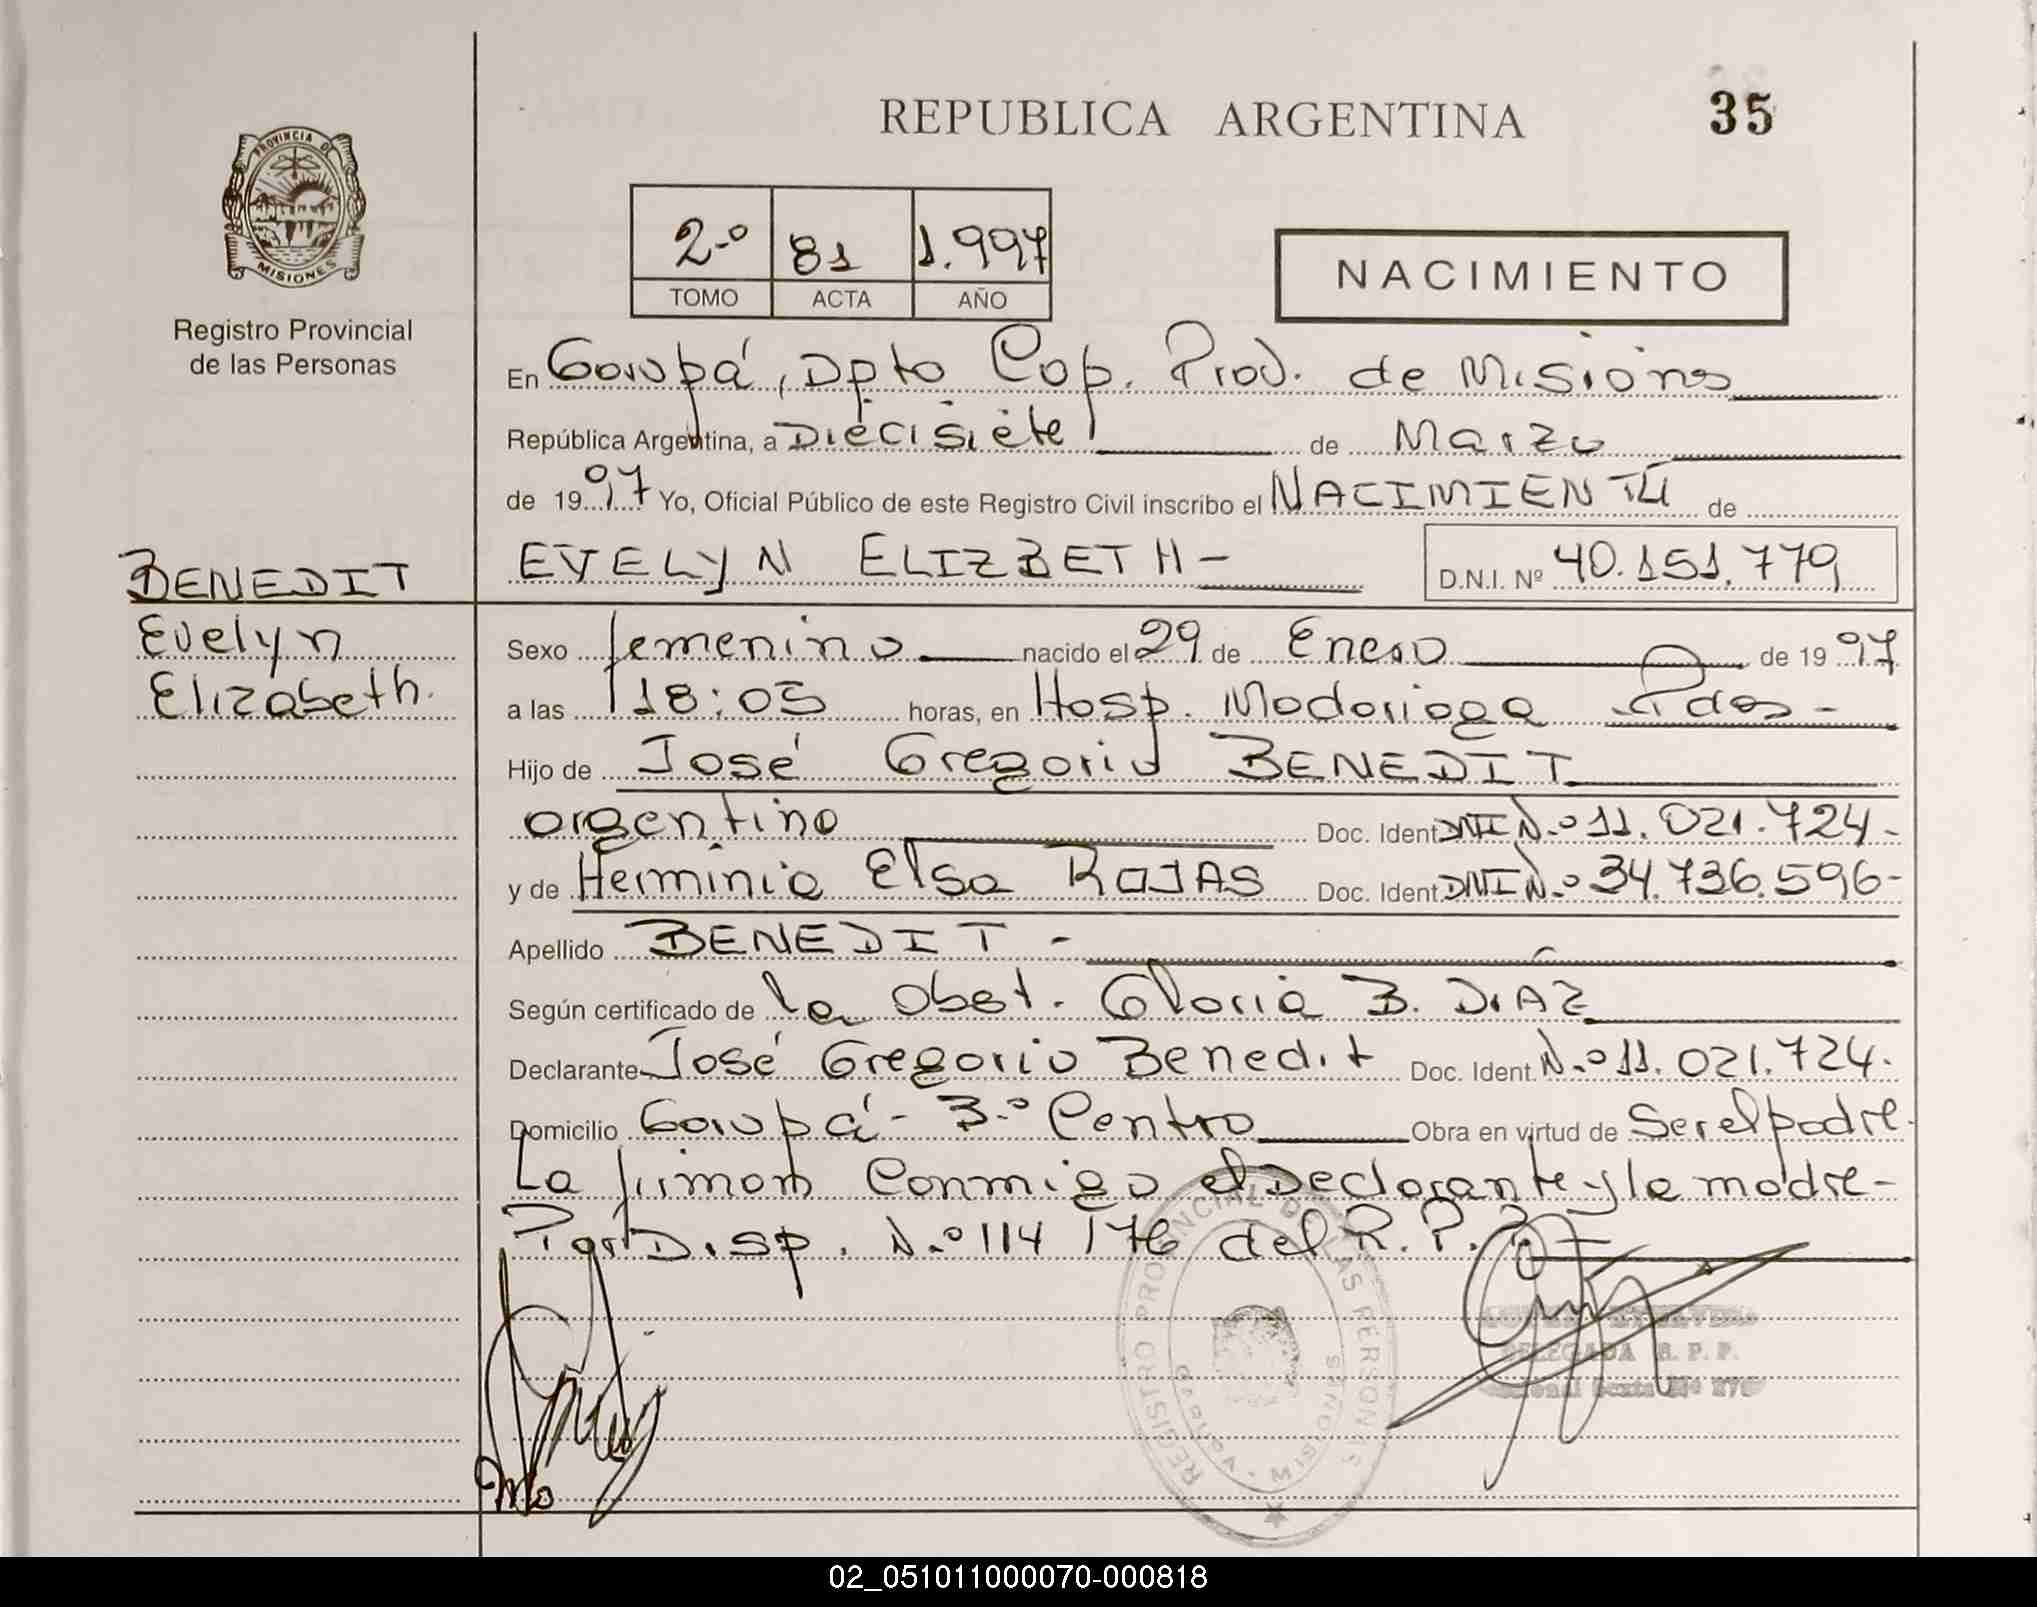 REPUBLICA ARGENTINA
35
PROVINCIA DE
MISIONES
Registro Provincial
de las Personas
2.º 81 1.997
TOMO ACTA AÑO
NACIMIENTO
En Garupá, Dpto Cap. Prov. de Misiones
República Argentina, a Diecisiete de Marzo
de 1997 Yo, Oficial Público de este Registro Civil inscribo el NACIMIENTO de
BENEDIT
EVELYN ELIZBETH-
D.N.I. Nº 40.151.779
Evelyn
Elizabeth.
Sexo femenino nacido el 29 de Enero de 1997
a las 18:05 horas, en Hosp. Madariaga Pdas-
Hijo de José Gregorio BENEDIT
argentino Doc. Ident. DNI N.º 11.021.724-
y de Herminia Elsa ROJAS Doc. Ident. DNI N.º 34.736.596-
Apellido BENEDIT -
Según certificado de la Obst. Gloria B. DIAZ
Declarante José Gregorio Benedit Doc. Ident. N.º 11.021.724.
Domicilio Garupá - B.º Centro Obra en virtud de Ser el padre.
La firman Conmigo el Declarante y la madre-
Por Disp. N.º 114/76 del R.P.P.-
REGISTRO PROVINCIAL DE LAS PERSONAS
MISIONES
DELEGADA R. P. P.
02_051011000070-000818